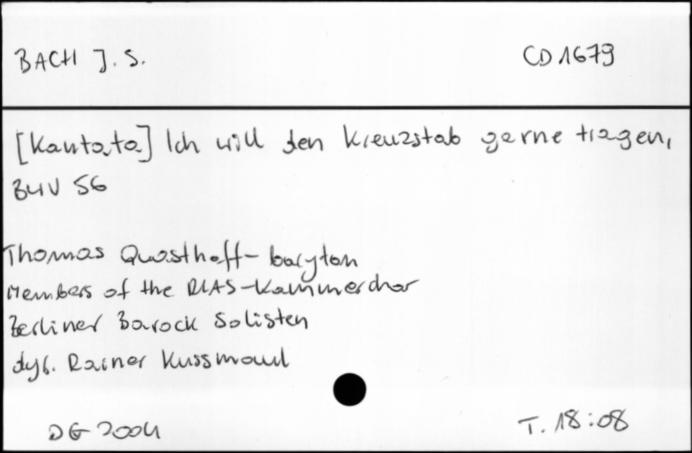 BACH J. S. CD 1679
[Kantata] Ich will den Kreuzstab gerne tragen,
BWV 56
Thomas Quasthoff - baryton
Members of the RIAS-Kammerchor
Berliner Barock Solisten
dyr. Rainer Kussmaul
DG 2004 T. 18:08